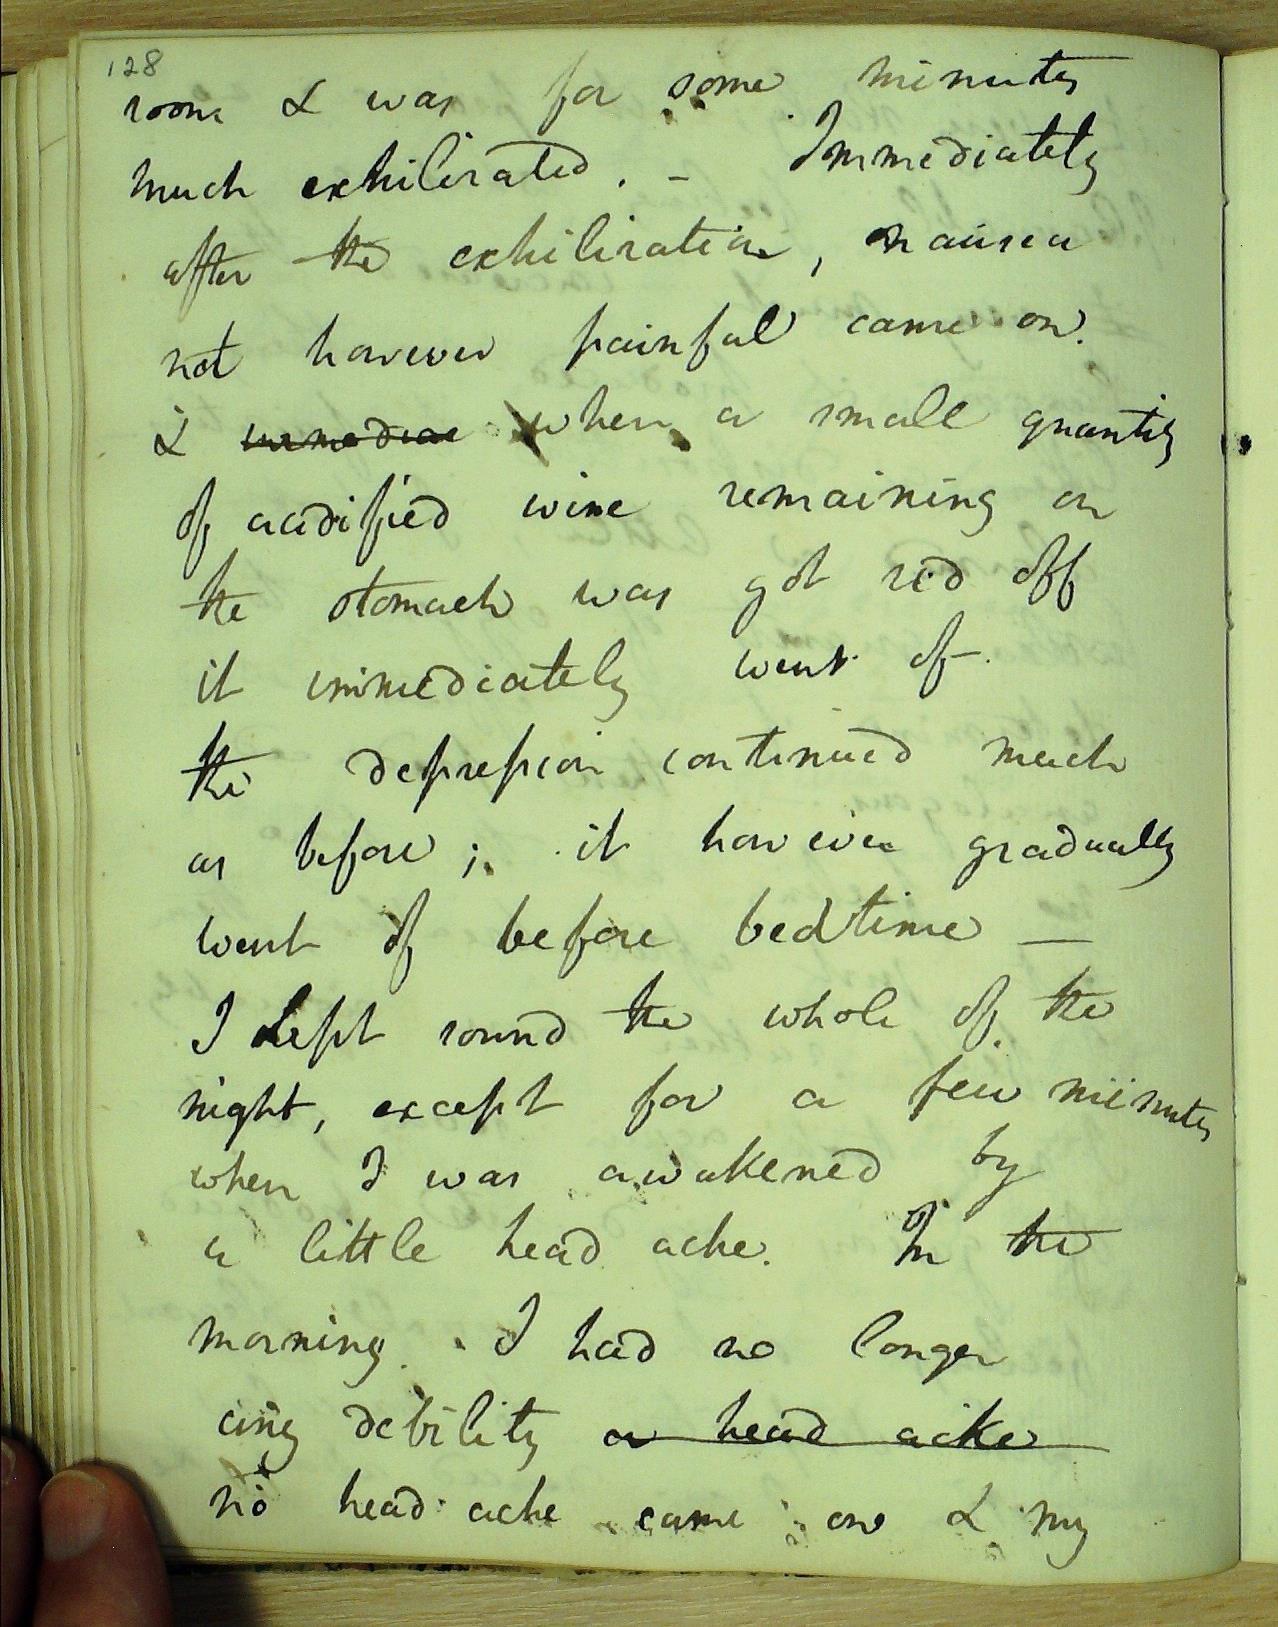 128
room & was for some minutes
much exhilirated. - Immediately
after the exhiliration, nausea
not however painful came on.
& immediae when a small quantity
of acidified wine remaining on
the stomach was got rid off
it immediately went of.
the depression continued much
as before; it however gradually
went of before bedtime —
I slept sound the whole of the
night, except for a few minutes
when I was awakened by
a little head ache. In the
morning. I had no longer
any debility or head ache
no head ache came on & my